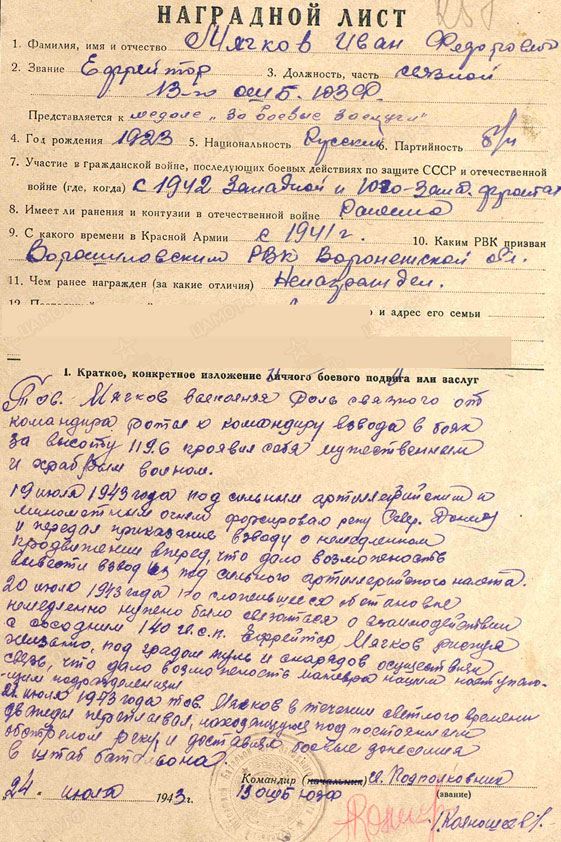 НАГРАДНОЙ ЛИСТ
1. Фамилия, имя и отчество Мячков Иван Федорович
2. Звание Ефрейтор 3. Должность, часть связной
13-го ошб. ЮЗФ.
Представляется к медале „За боевые заслуги"
4. Год рождения 1923 5. Национальность Русский 6. Партийность б/п
7. Участие в гражданской войне, последующих боевых действиях по защите СССР и отечественной
войне (где, когда) с 1942 Западной и Юго-Зап. фронтах
8. Имеет ли ранения и контузии в отечественной войне
9. С какого времени в Красной Армии с 1941 г. 10. Каким РВК призван
Ворошиловским РВК Воронежской обл.
11. Чем ранее награжден (за какие отличия) Ненагражден.
и адрес его семьи
I. Краткое, конкретное изложение личного боевого подвига или заслуг
Тов. Мячков выполняя роль связного от
командира роты к командиру взвода в боях
за высоту 119.6 проявил себя мужественным
и храбрым воином.
19 июля 1943 года под сильным артиллерийским и
минометным огнем форсировал реку Север. Донец
и передал приказание взводу о немедленном
продвижении вперед, что дало возможность
вывести взвод из под сильного артиллерийского налета.
20 июля 1943 года по сложившейся обстановке
немедленно нужно было связаться о взаимодействии
с соседним 140 гв. с.п. Ефрейтор Мячков рискуя
жизнью, под градом пуль и снарядов осуществил
связь, что дало возможность маневра нашим наступаю-
щим подразделениям
июля 1943 года тов. Мячков в течении светлого времени
дважды переплывал, находящуюся под постоянным
обстрелом реку, и доставлял боевые донесения
в штаб батальона.
Командир (начальник) Подполковник
24 июля 1943 г. 13 ОШБ ЮЗФ (звание)